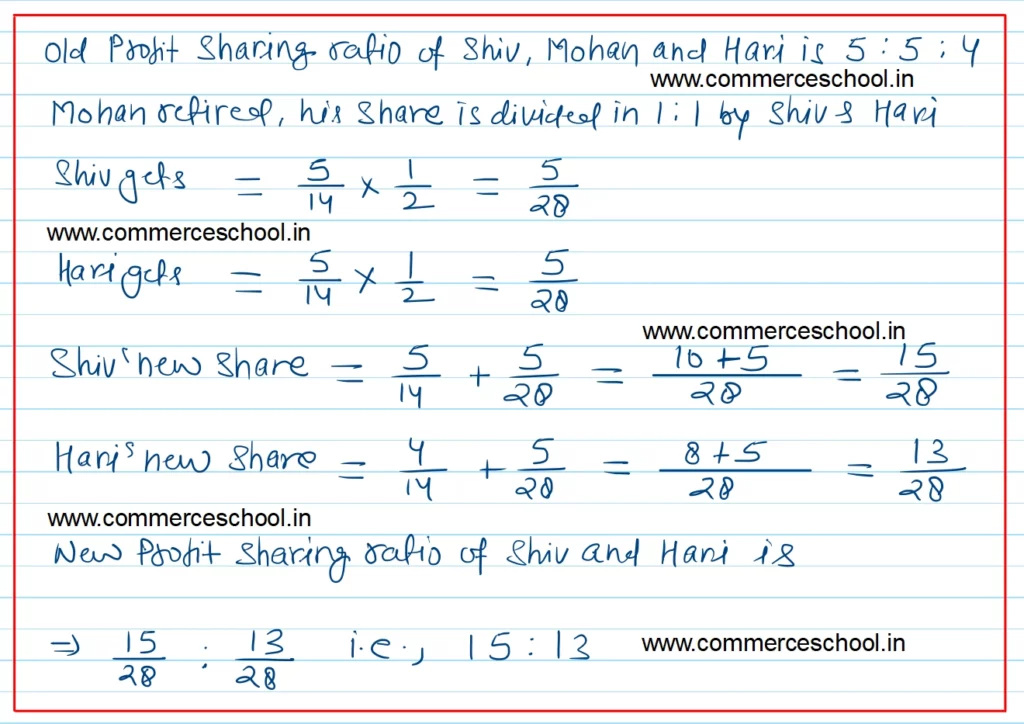 Old Profit Sharing ratio of Shiv, Mohan and Hari is 5 : 5 : 4
www.commerceschool.in
Mohan retired, his share is divided in 1 : 1 by Shiv & Hari
Shiv gets = 5/14 × 1/2 = 5/28
www.commerceschool.in
Hari gets = 5/14 × 1/2 = 5/28
www.commerceschool.in
Shiv's new share = 5/14 + 5/28 = 10+5/28 = 15/28
Hari's new share = 4/14 + 5/28 = 8+5/28 = 13/28
www.commerceschool.in
New Profit sharing ratio of Shiv and Hari is
⇒ 15/28 : 13/28 i.e., 15 : 13 www.commerceschool.in